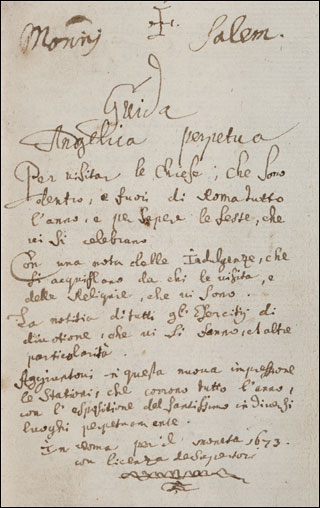 Salem.
Guida
Angelica perpetua
Per visitar le Chiese, che sono
dentro, e fuori di Roma tutto
l'anno, e per sapere le feste, che
vi si celebrano
Con una nota delle Indulgenze, che
si acquistano da chi le visita, e
delle Reliquie, che vi sono.
La notitia di tutti gli Esercitij di
divotione, che vi si fanno, et altre
particolarità.
Aggiuntovi in questa nuova impressione
le Stationi, che corrono tutto l'anno,
con l'espositione del Santissimo in diversi
luoghi perpetuamente.
In Roma per il Moneta 1673.
con licenza de Superiori